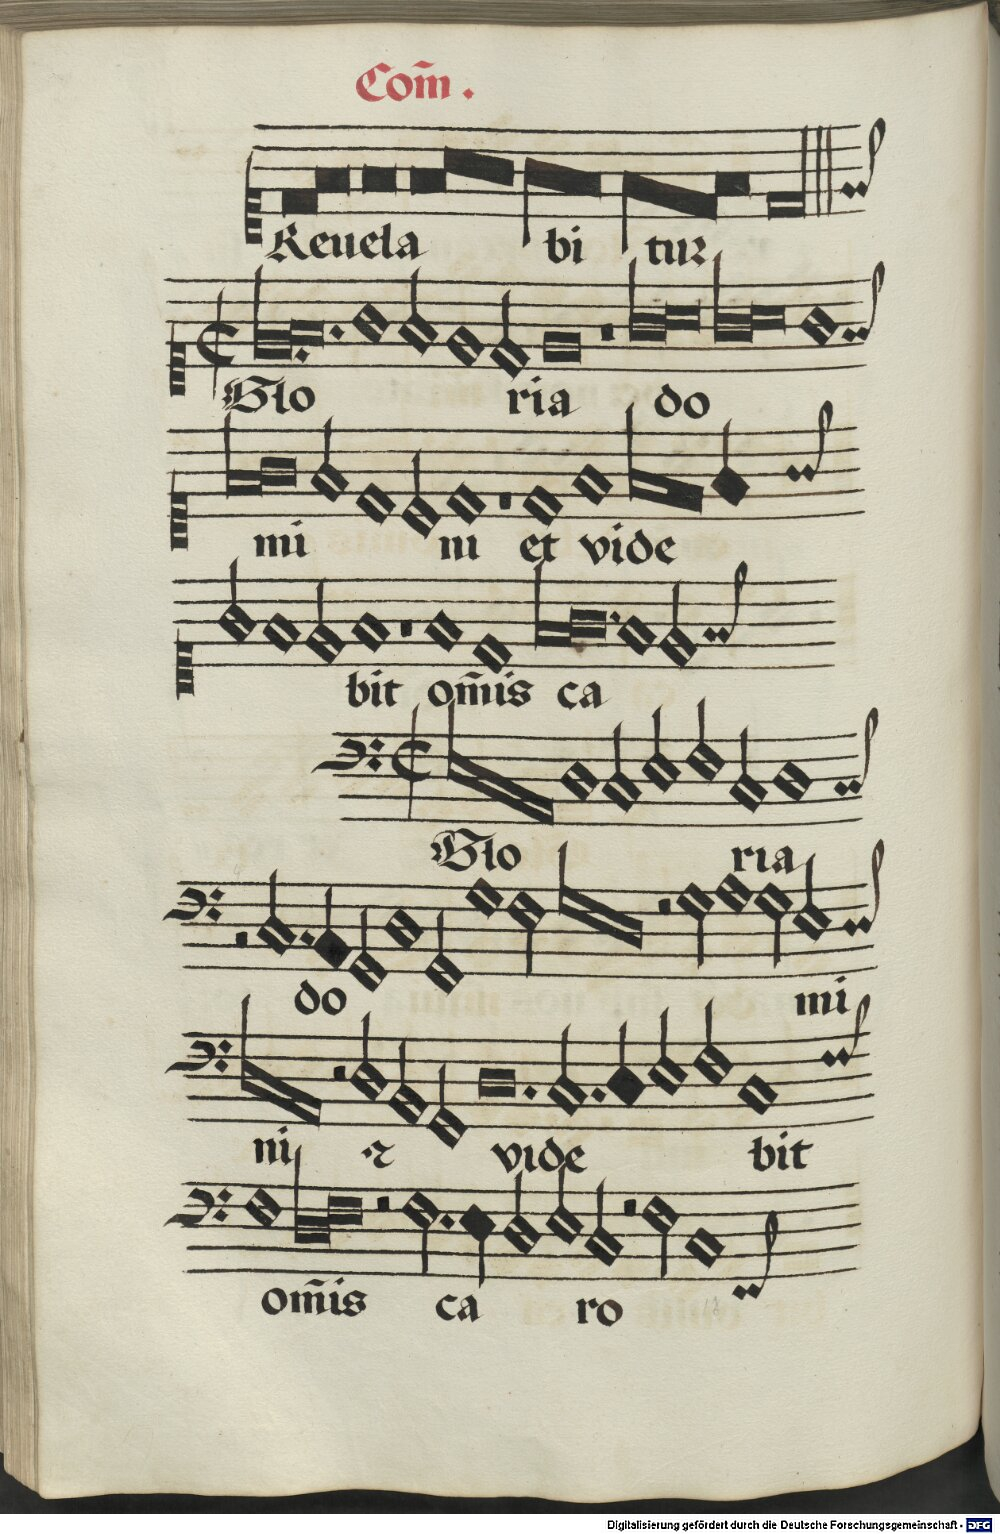 Com̃.
Reuela bi tur
Glo ria do
mi ni et vide
bit om̃is ca
Glo ria
do mi
ni ⁊ vide bit
om̃is ca ro
Digitalisierung gefördert durch die Deutsche Forschungsgemeinschaft - DFG